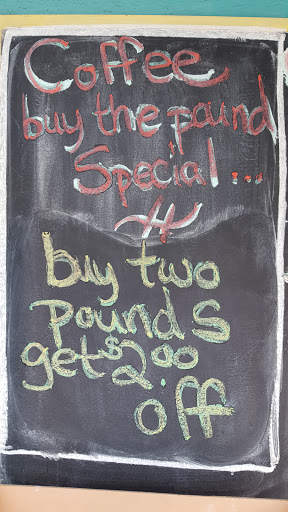 Coffee
buy the pound
Special...
buy two
pounds
get $2.00
off